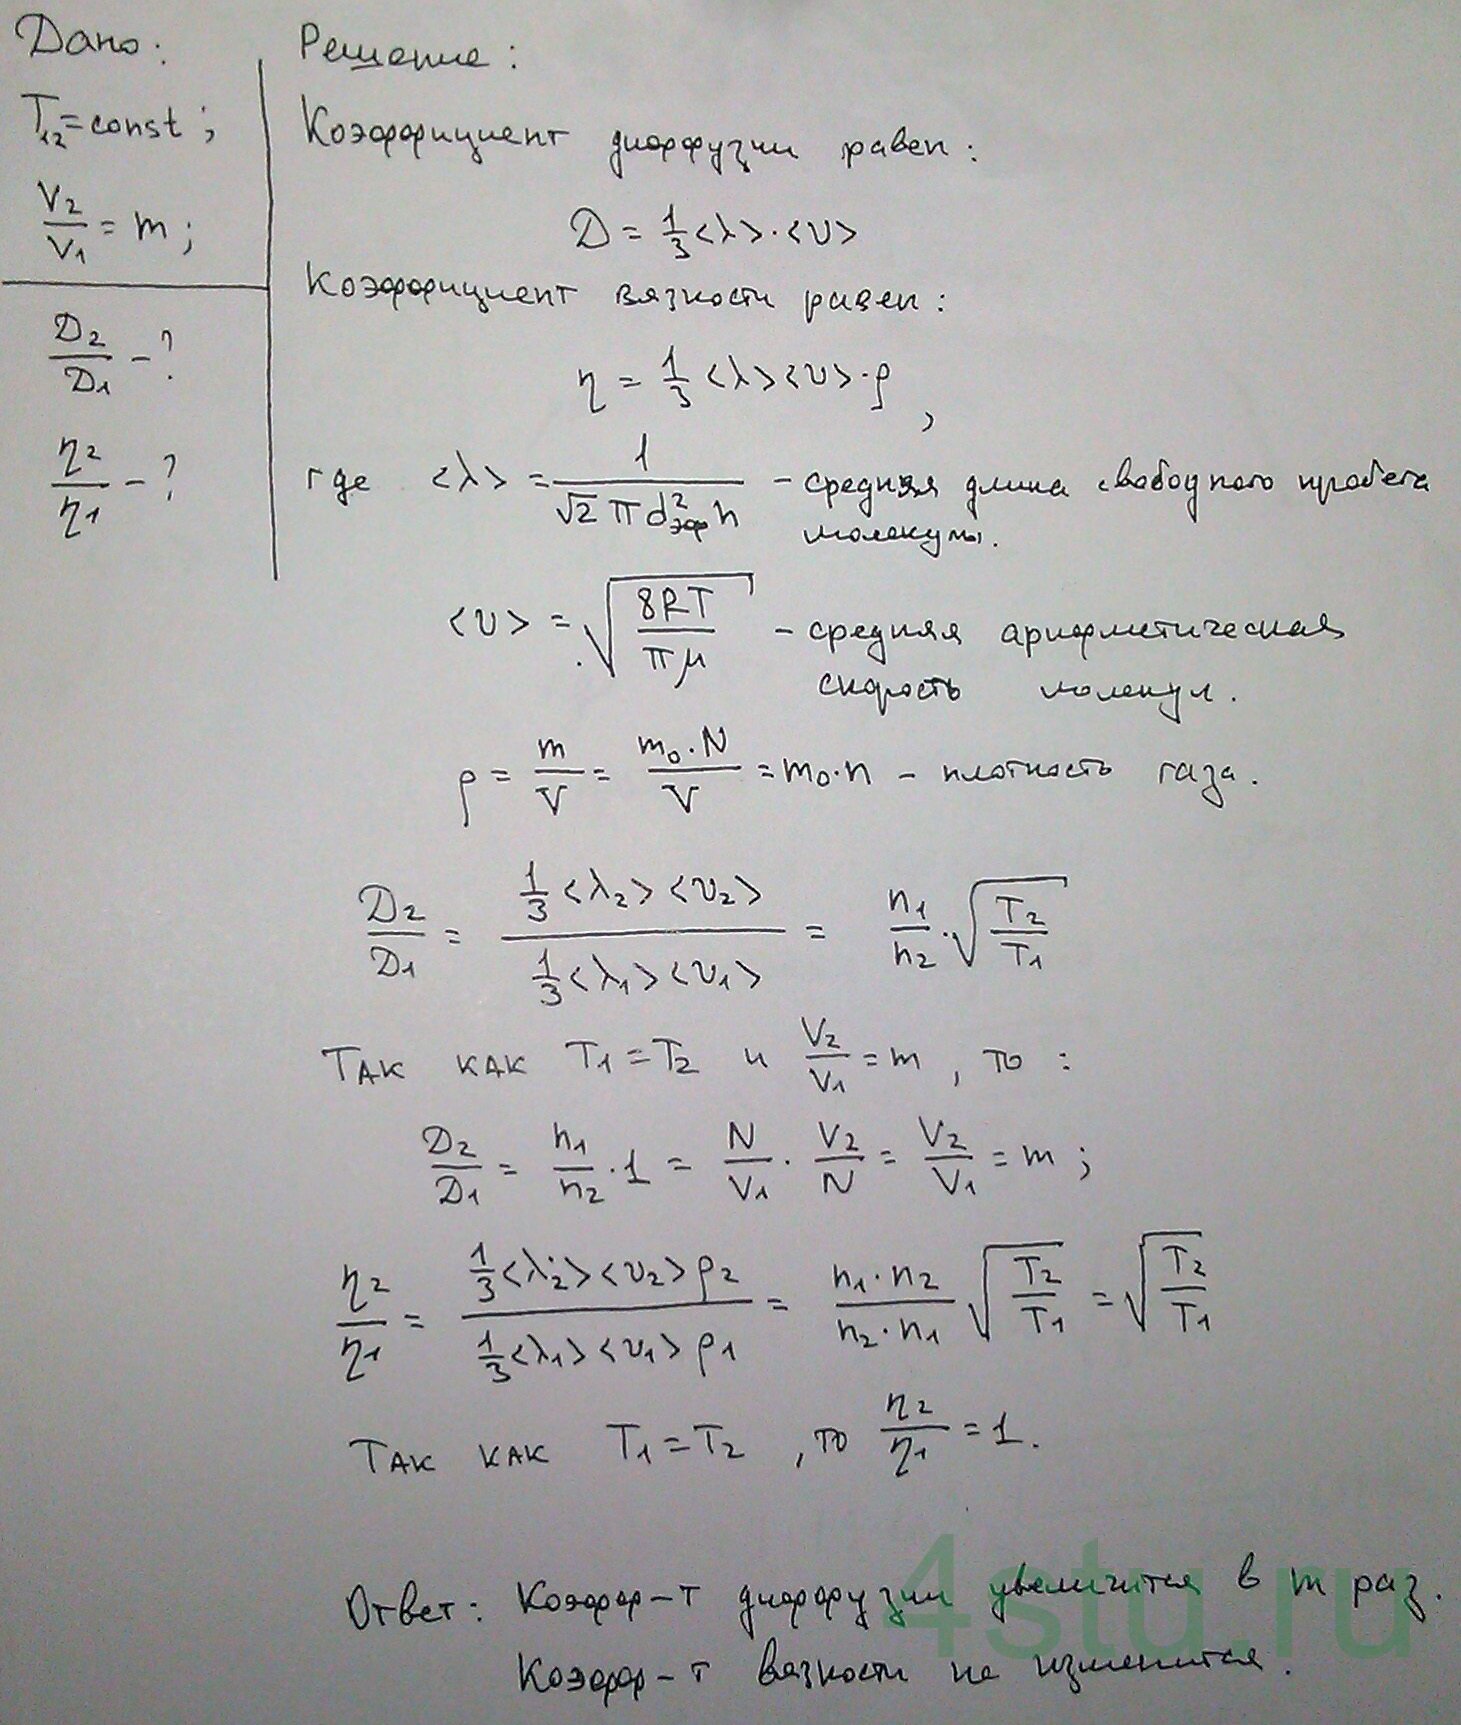 Дано:
T₁₂=const;
V₂/V₁ = m;
D₂/D₁ - ?
η₂/η₁ - ?
Решение:
Коэффициент диффузии равен:
D = 1/3 <λ>·<υ>
Коэффициент вязкости равен:
η = 1/3 <λ><υ>·ρ,
где <λ> = 1/(√2 π d²эф n) - средняя длина свободного пробега
молекулы.
<υ> = √(8RT/πμ) - средняя арифметическая
скорость молекул.
ρ = m/V = m₀·N/V = m₀·n - плотность газа.
D₂/D₁ = (1/3 <λ₂><υ₂>)/(1/3 <λ₁><υ₁>) = n₁/n₂ · √(T₂/T₁)
Так как T₁=T₂ и V₂/V₁ = m, то:
D₂/D₁ = n₁/n₂ · 1 = N/V₁ · V₂/N = V₂/V₁ = m;
η₂/η₁ = (1/3 <λ₂><υ₂>ρ₂)/(1/3 <λ₁><υ₁>ρ₁) = (n₁·n₂)/(n₂·n₁) √(T₂/T₁) = √(T₂/T₁)
Так как T₁=T₂, то η₂/η₁ = 1.
Ответ: Коэфф-т диффузии увеличится в m раз.
Коэфф-т вязкости не изменится.
4stu.ru